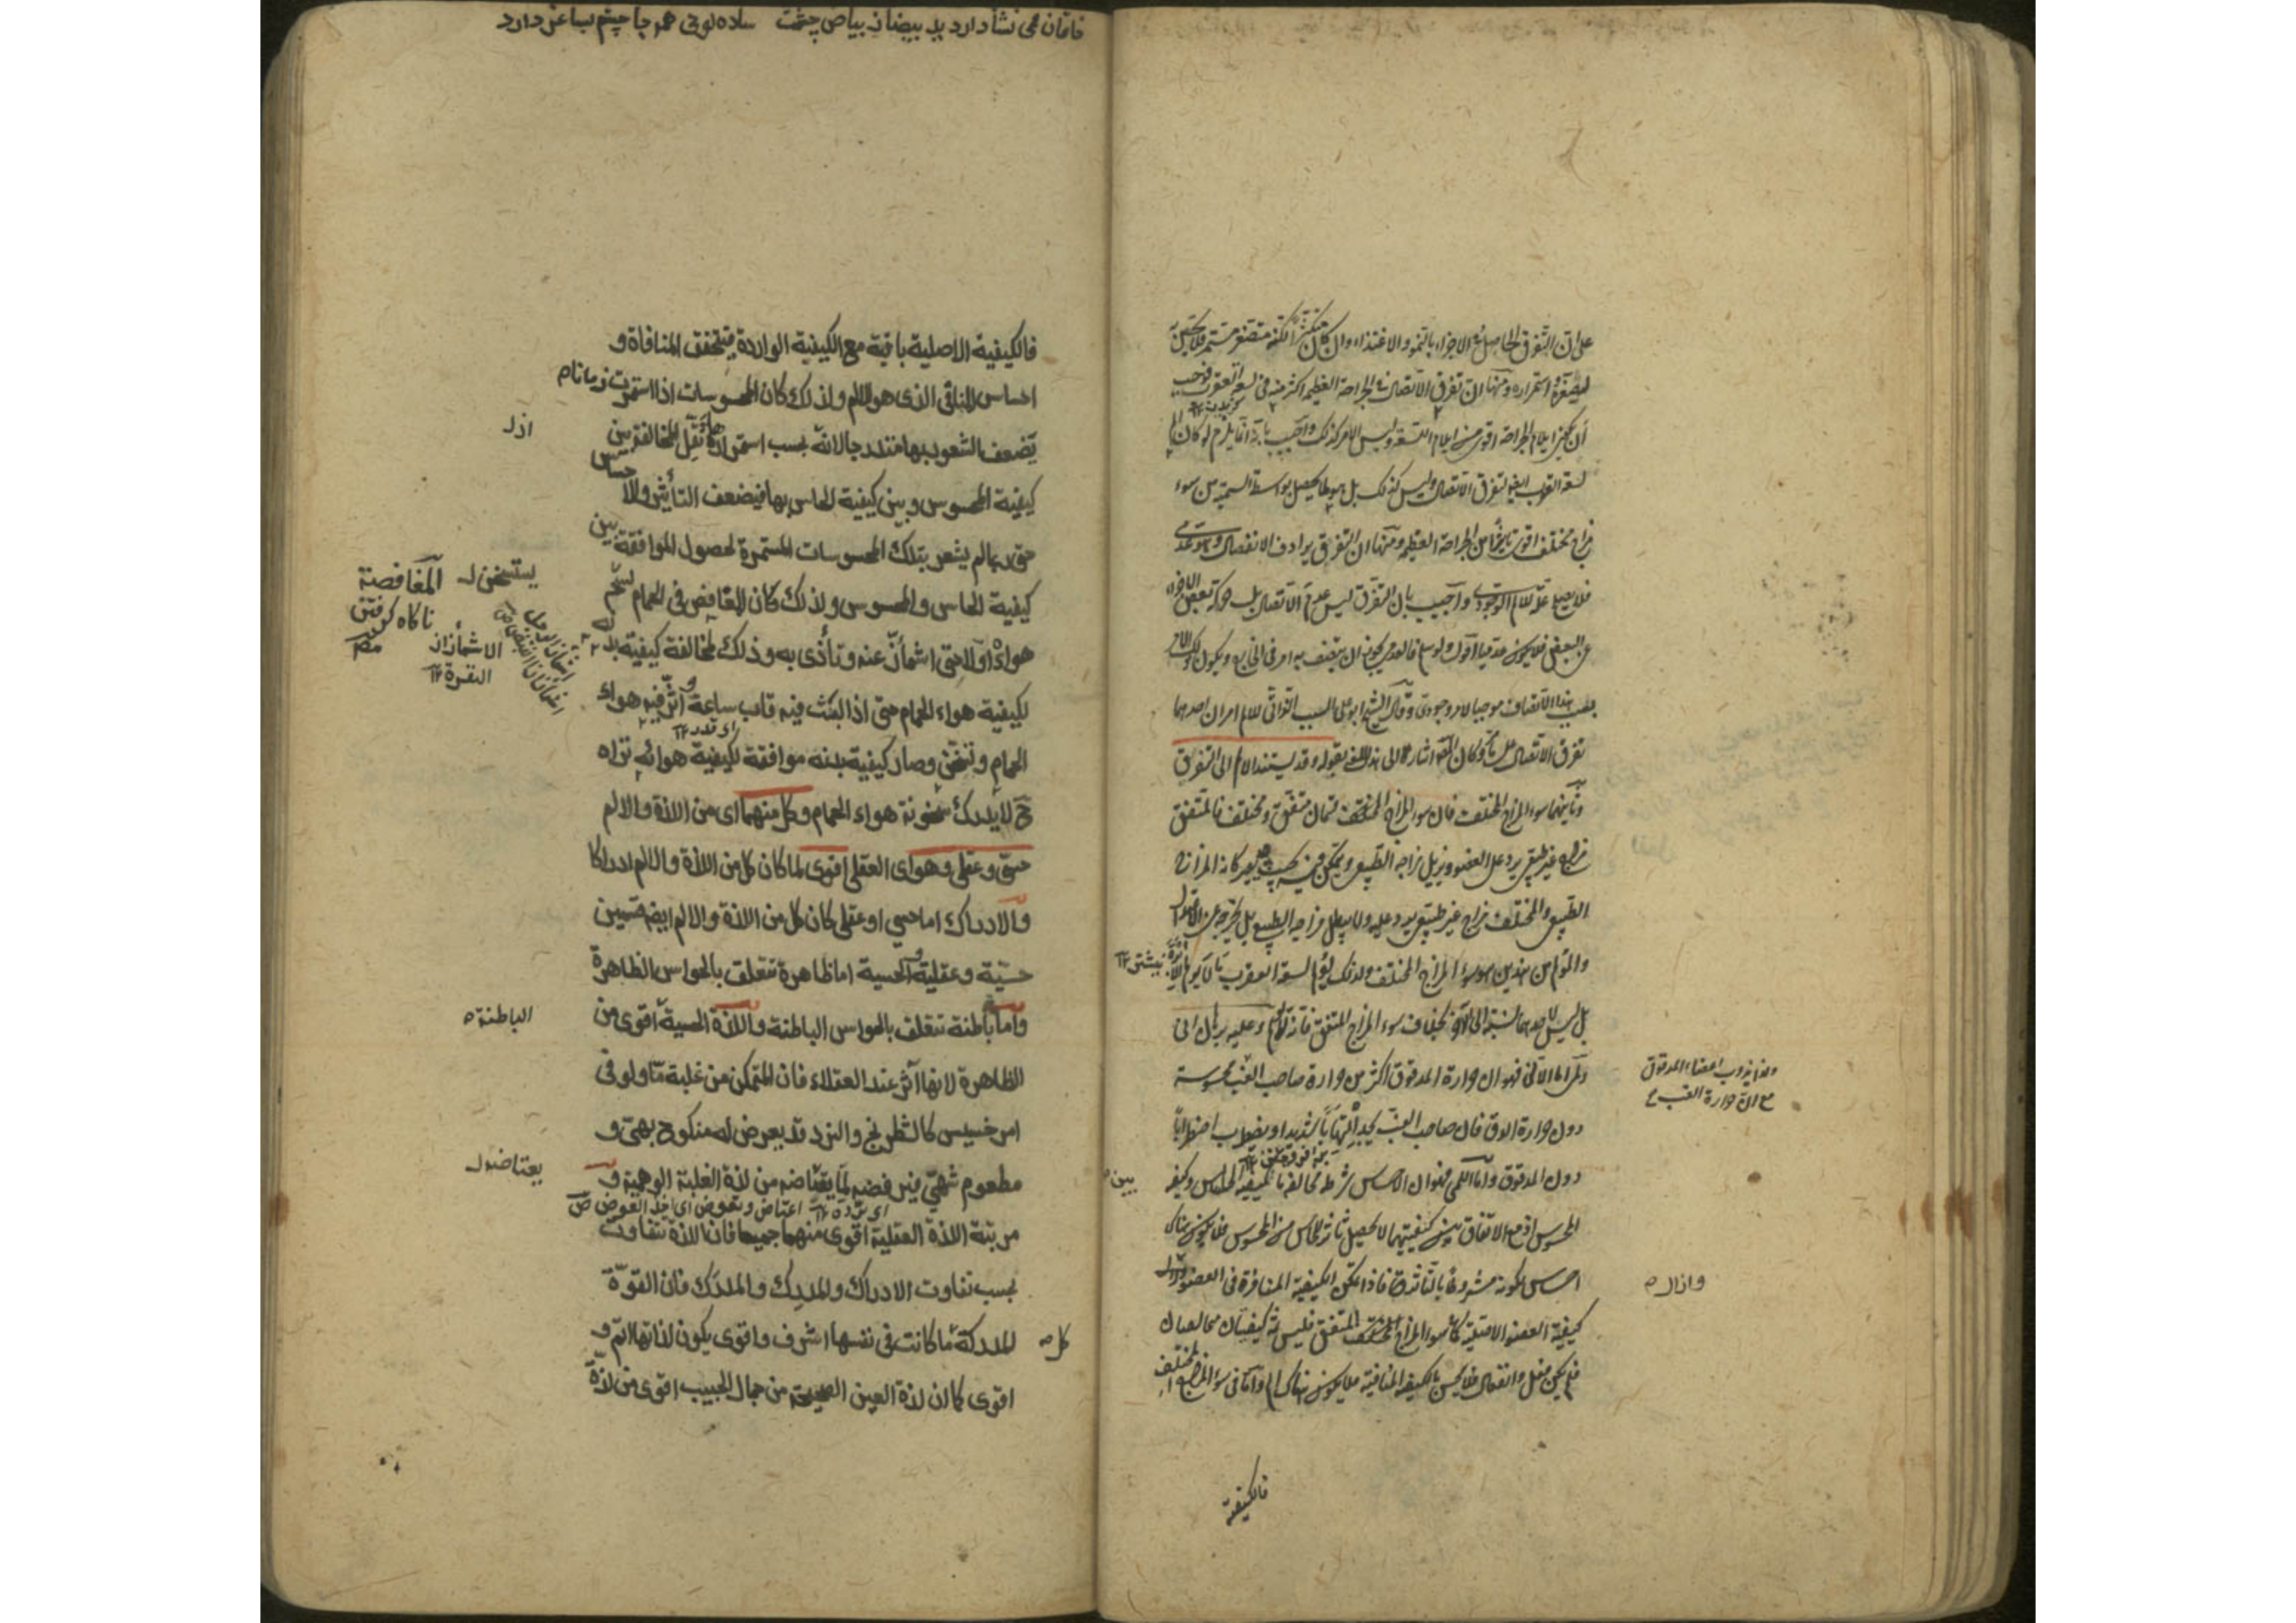 على ان التفرق الحاصل في الاجزاء بالنمو والاغتذاء وان كان لكنه متصغر مستمر فلا يحس به
لصغره واستمراره ومنها ان تفرق الاتصال في الجراحة العظيمة اكثر منه في لسعة العقرب فوجب
ان يكون ايلام الجراحة اقوى من ايلام اللسعة وليس الامر كذلك واجيب بانه انما يلزم لو كان الم
لسعة العقرب ايضا لتفرق الاتصال وليس كذلك بل هو لما يحصل بواسطة السمية من سوء
مزاج مختلف اقوى تاثيرا من الجراحة العظيمة ومنها ان التفرق يرادف الانفصال وهو عدمي
فلا يصلح علة للالم الوجودي واجيب بان التفرق ليس عدم الاتصال بل حركة بعض الاجزاء
عن البعض فلا يكون عدميا اقول ولو سلم فالعدمي يجوز ان يتصف به امر في الخارج ويكون ذلك الامر
بسبب هذا الاتصاف موجبا لامر وجودي وقال الشيخ ابو علي السبب الذاتي للالم امران احدهما
تفرق الاتصال على ما مر وكان المص اشار الى هذا المعنى بقوله وقد يستند الالم الى التفرق
وثانيهما سوء المزاج المختلف فان سوء المزاج قسمان متفق ومختلف فالمتفق
مزاج غير طبيعي يرد على العضو ويزيل مزاجه الطبيعي ويتمكن فيه بحيث يصير كانه المزاج
الطبيعي والمختلف مزاج غير طبيعي يرد عليه ولا يبطل مزاجه الطبيعي بل يخرجه عن الاعتدال
والمؤلم من هذين هو سوء المزاج المختلف ولذلك يؤلم لسعة العقرب ما لا يؤلم الابرة
بل ليس لاحدهما نسبة الى الآخر بخلاف سوء المزاج المتفق فانه لا يؤلم وعليه برهان اني
ولمي اما الاني فهو ان حرارة المدقوق اكثر من حرارة صاحب الغب محسوسة
دون حرارة الدق فان صاحب الغب يجد التهابا شديدا ويضطرب اضطرابا
دون المدقوق واما اللمي فهو ان الاحساس شرطه مخالفة ما لكيفية الحاس وكيفية
المحسوس اذ مع الاتفاق بين كيفيتيهما لا يحصل تاثر للحاس من المحسوس فلا يكون هناك
احساس لكونه مشروطا بالتاثر فاذا تمكن الكيفية المنافرة في العضو وازال
كيفية العضو الاصلية كما في سوء المزاج المتفق فليس ثمة كيفيتان متخالفتان
فلم يكن فعل وانفعال فلا يحس بالكيفية المنافية فلا يكون هناك الم واما في سوء المزاج المختلف
فالكيفية
ولهذا يذوب اعضاء المدقوق
مع ان حرارة الغب
وازال
بين
فالكيفية الاصلية باقية مع الكيفية الواردة فيتحقق المنافاة و
احساس المنافي الذي هو الالم ولذلك كان المحسوسات اذا استمرت زمانا
يضعف الشعور بها متدرجا لانه بحسب استمرارها تقل المخالفة بين
كيفية المحسوس وبين كيفية الحاس بها فيضعف التأثر والاحساس
حتى ربما لم يشعر بتلك المحسوسات المستمرة لحصول الموافقة بين
كيفية الحاس والمحسوس ولذلك كان المغافص في الحمام يستحر
هواءه اولا حتى اشمأز عنه وتأذى به وذلك لمخالفة كيفية بدنه
لكيفية هواء الحمام حتى اذا لبث فيه قاب ساعة واثر فيه هواء
الحمام وتسخن وصار كيفية بدنه موافقة لكيفية هوائه تراه
ح لا يدرك سخونة هواء الحمام وكل منهما اى من اللذة والالم
حسي وعقلي وهو اى العقلي اقوى لما كان كل من اللذة والالم ادراكا
والادراك اما حسي او عقلي كان كل من اللذة والالم ايضا قسمين
حسية وعقلية والحسية اما ظاهرة تتعلق بالحواس الظاهرة
واما باطنة تتعلق بالحواس الباطنة واللذة الحسية اقوى من
الظاهرة لانها آثر عند العقلاء فان المتمكن من غلبة ما ولو في
امر خسيس كالشطرنج والنرد قد يعرض له منكوح بهي و
مطعوم شهي فيرفضه لما يعتاضه من لذة الغلبة الوهمية و
مرتبة اللذة العقلية اقوى منهما جميعا فان اللذة تتفاوت
بحسب تفاوت الادراك والمدرِك والمدرَك فان القوة
المدركة ما كانت في نفسها اشرف واقوى يكون لذاتها اتم و
اقوى كما ان لذة العين الصحيحة من جمال الحبيب اقوى من لذة
اذ
يستسخن
المغافصة
ناكاه كرفتن
الاشمأزاز
النفرة ١٢
الباطنة
يعتاضه
اى قدر ١٢
اعتاض وتعوض اى اخذ العوض ص
كل